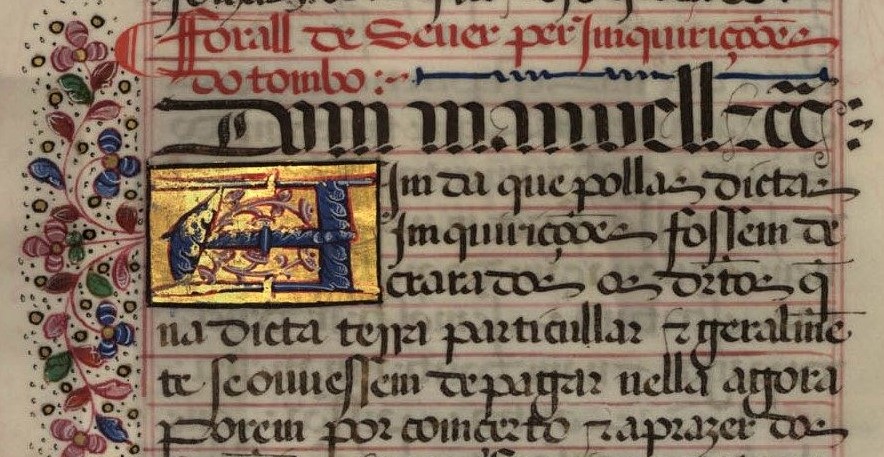 fforall de Seuer per Jmquiriçõoes
do tombo :~
Dom manuell ⁊ cc̃ :
AJmda que pollas dictas
Jmquiriçõoes fossem de
crarados os dr̃tos q̃
na dicta terra particullar ⁊ geralmẽ
te se ouuessem de pagar nella aggora
porem por comcerto ⁊ aprazer dos